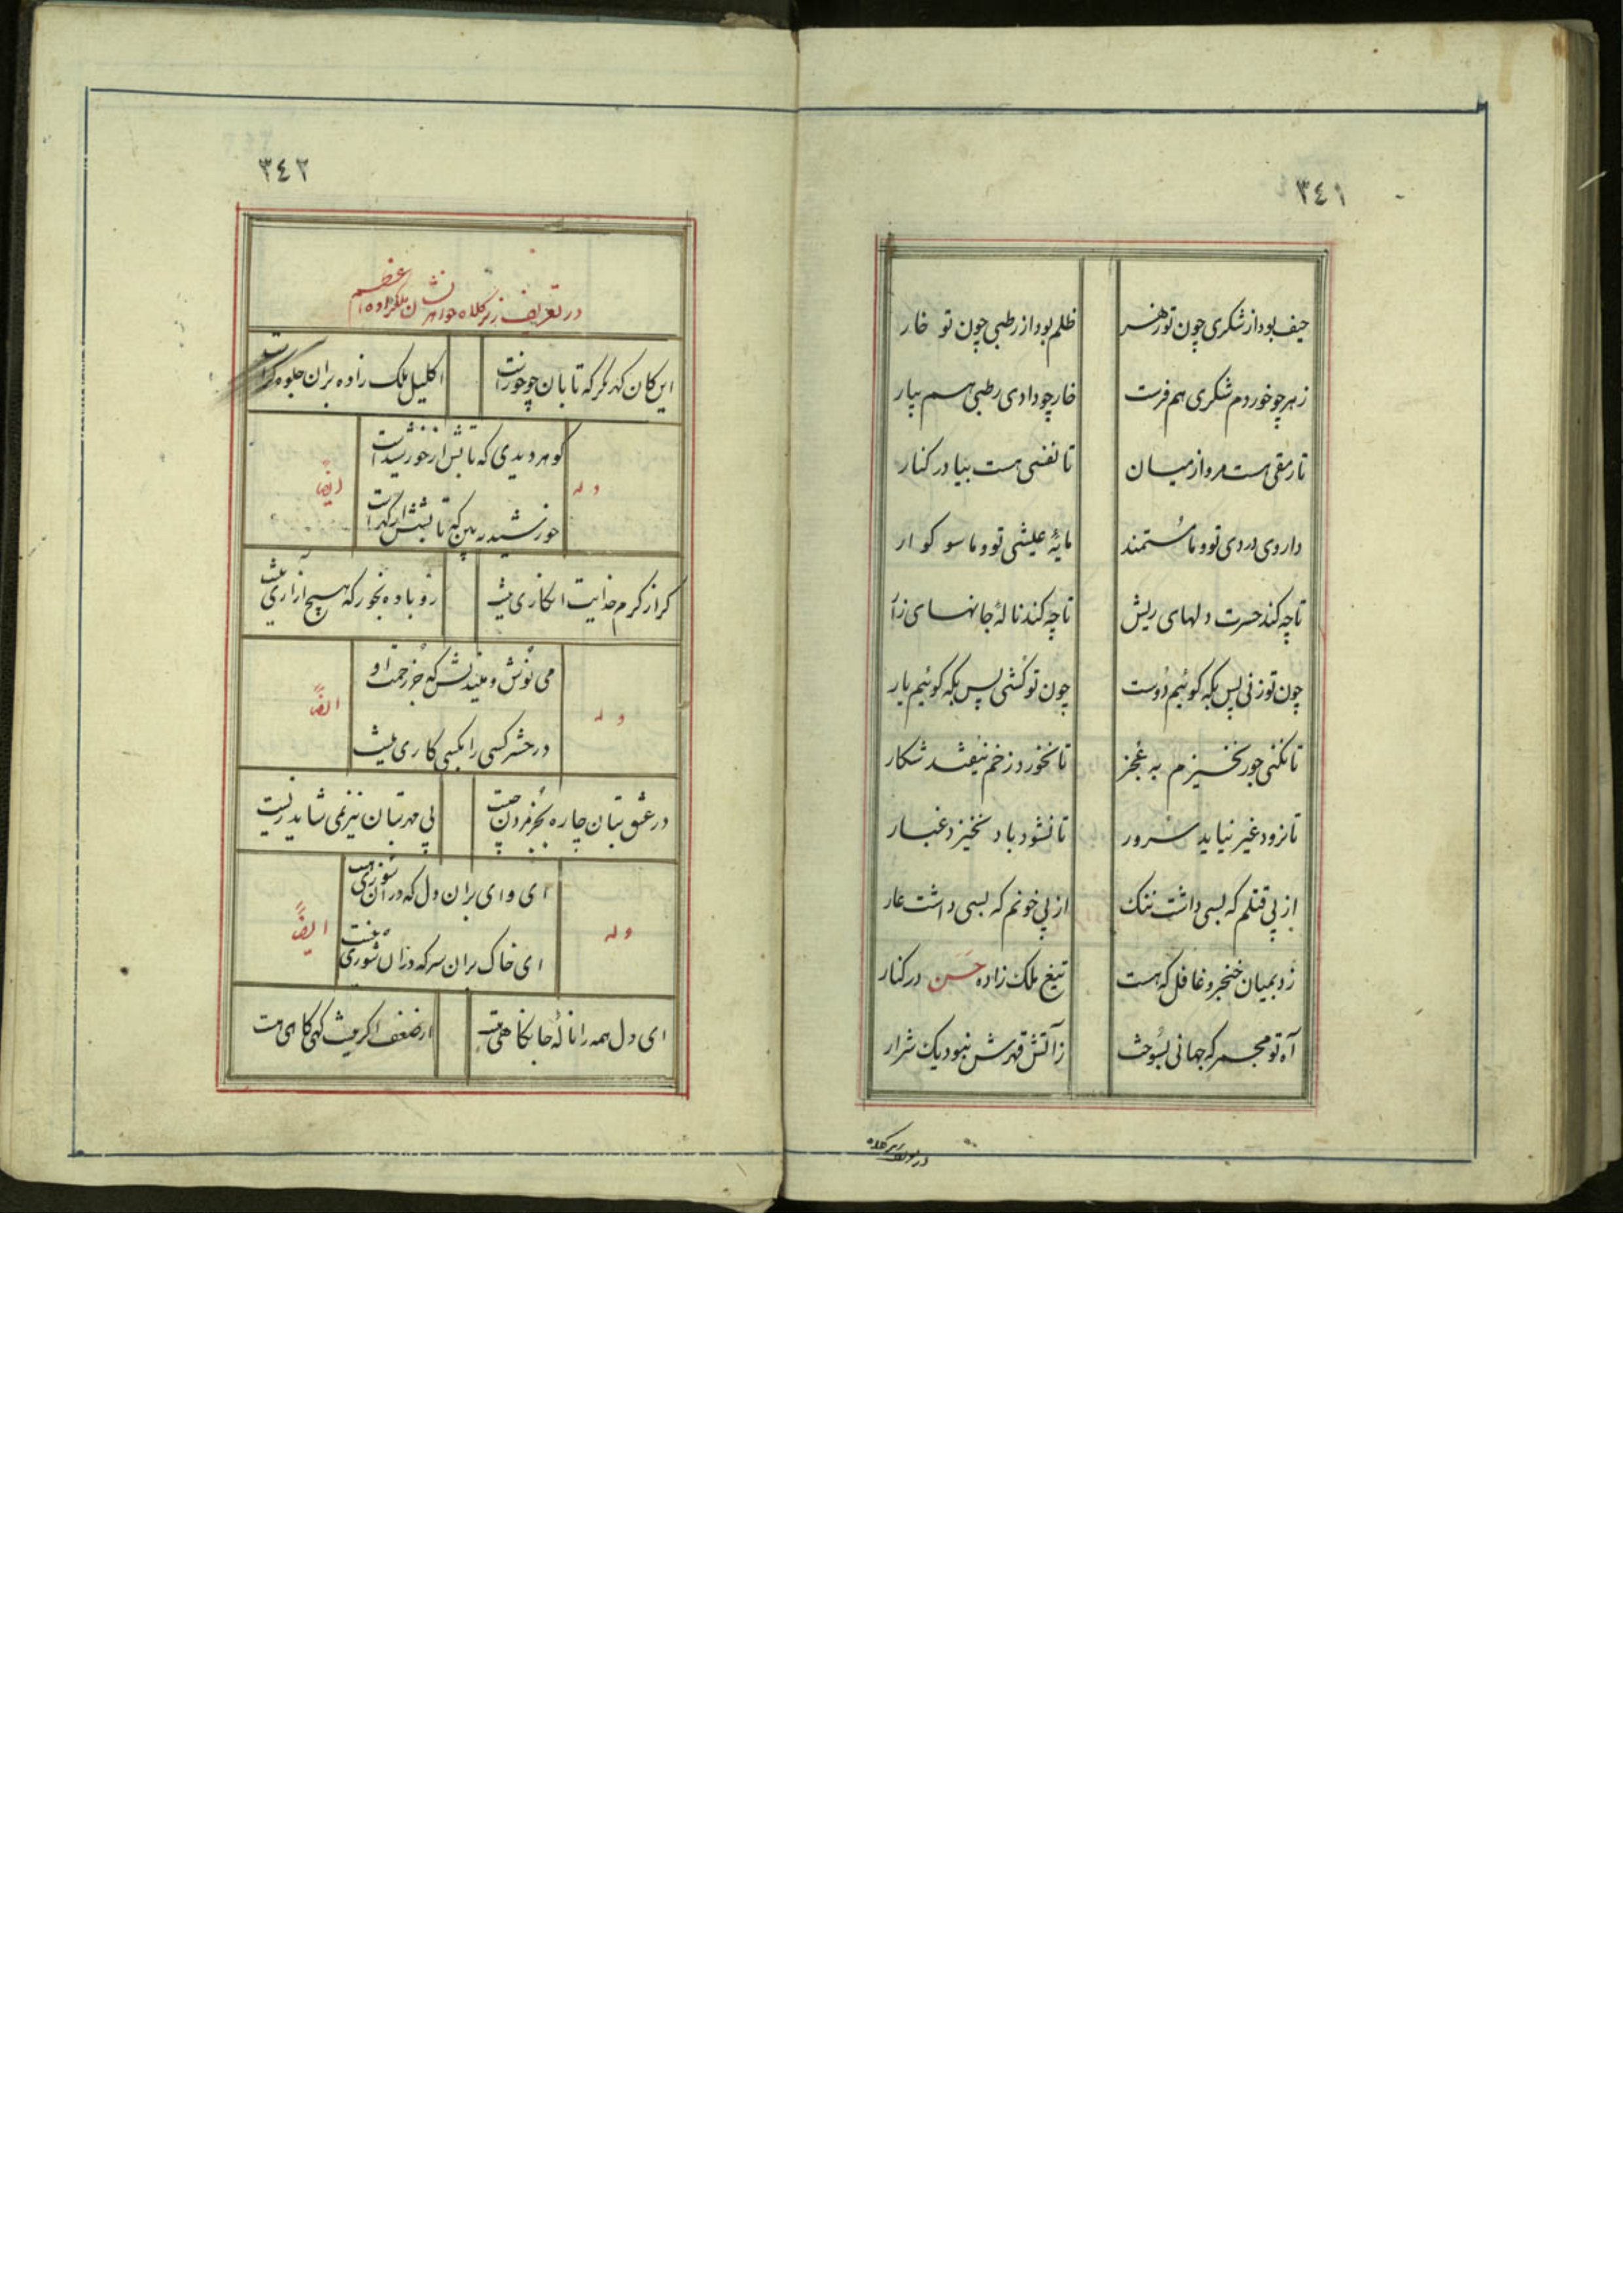 ٣٤١
حیف بود از شکری چون تو زهر
ظلم بود از رطبی چون تو خار
زهر چو خوردم شکری هم فرست
خار چو دادی رطبی هم بیار
تا رمقی هست مرو از میان
تا نفسی هست بیا در کنار
داروی دردی تو و ما مستمند
مایهٔ عیشی تو و ما سوکوار
تا چه کند حسرت دلهای ریش
تا چه کند نالهٔ جانهای زار
چون تو زنی پس بکه کوئیم دوست
چون تو کشی پس بکه کوئیم یار
تا نکنی جور نخیزم به عجز
تا نخورد زخم نیفتد شکار
تا نرود غیر نیاید سرور
تا نشود باد نخیزد غبار
از پی قتلم که بسی داشت ننک
از پی خونم که بسی داشت عار
زد بمیان خنجر و غافل که هست
تیغ ملک زاده حسن در کنار
آه تو مجمر که جهانی بسوخت
ز آتش قهرش نبود یک شرار
٣٤٢
در تعریف زیر کلاه جواهر نشان ملکزاده اعظم
این کان کهر نکر که تابان چو خور است
اکلیل ملک زاده بران جلوه کر است
وله
کوهر دیدی که تابش از خورشید است
خورشید ببین که تابشش از کهر است
ایضاً
کر از کرم خدایت انکاری نیست
رو باده بخور که هیچ آزاری نیست
وله
می نوش و میندیش که جز رحمت او
در حشر کسی را بکسی کاری نیست
ایضاً
در عشق بتان چاره بجز مردن چیست
بی مهر بتان نیز نمی شاید زیست
وله
ای وای بران دل که در آن سوزی نیست
ای خاک بران سر که دران شوری نیست
ایضاً
ای دل همه را نالهٔ جانکاهی هست
از ضعف اکر نیست کهی کاهی هست